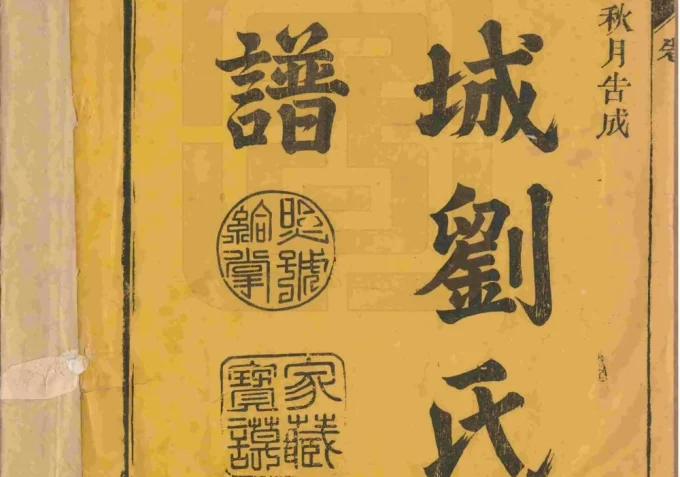 秋月告成
城劉氏
譜
照號給掌
家藏寶譜